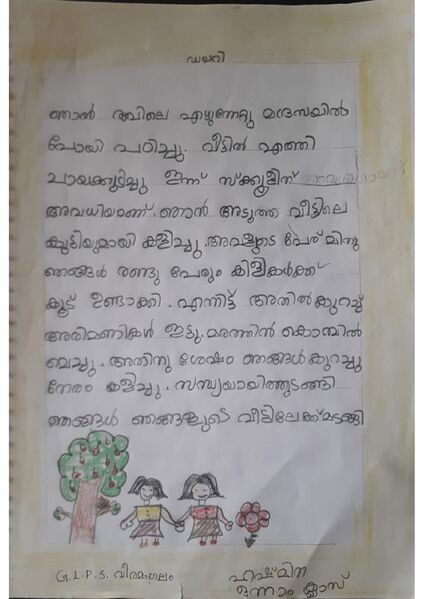 ഡയറി
ഞാൻ രാവിലെ എഴുന്നേറ്റു മദ്രസയിൽ
പോയി പഠിച്ചു. വീട്ടിൽ എത്തി
ചായക്കുടിച്ചു ഇന്ന് സ്ക്കൂളിന്
അവധിയാണ്. ഞാൻ അടുത്ത വീട്ടിലെ
കുട്ടിയുമായി കളിച്ചു. അവളുടെ പേര് മിനു
ഞങ്ങൾ രണ്ടു പേരും കിളികൾക്ക്
കൂട് ഉണ്ടാക്കി. എന്നിട്ട് അതിൽ കുറച്ച്
അരിമണികൾ ഇട്ടു. മരത്തിൻ കൊമ്പിൽ
വെച്ചു. അതിനു ശേഷം ഞങ്ങൾ കുറച്ചു
നേരം കളിച്ചു. സന്ധ്യയായിത്തുടങ്ങി
ഞങ്ങൾ ഞങ്ങളുടെ വീട്ടിലേക്ക് മടങ്ങി
G.L.P.S. വീരമംഗലം
ഹിഷ്മിന
ഒന്നാം ക്ലാസ്